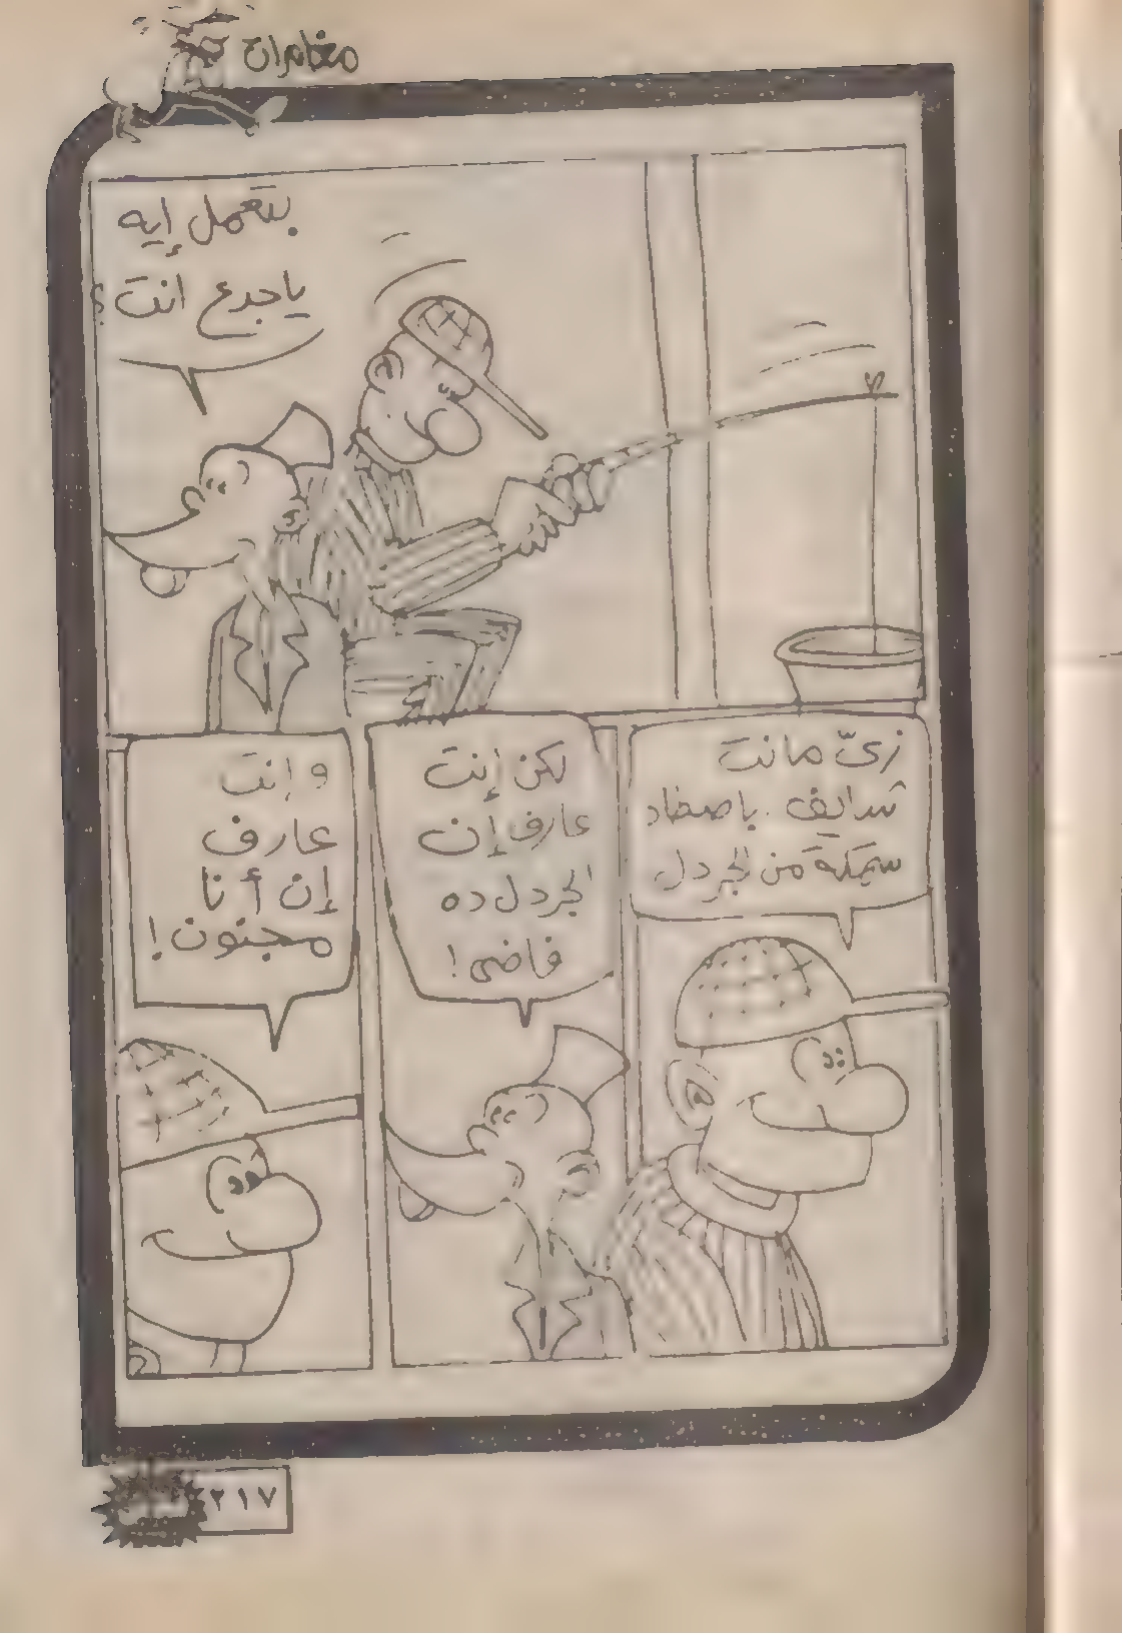 مغامرات
بتعمل إيه
ياجدع انت؟
زىّ ما انت
شايف .باصطاد
سمكة من الجردل
لكن إنت
عارف إن
الجردل ده
فاضى!
وإنت
عارف
إن أنا
مجنون!
٢١٧